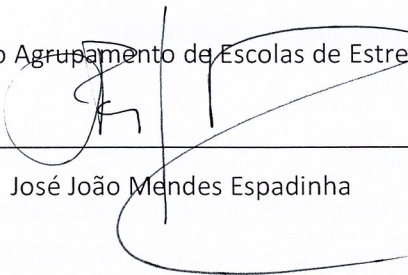 o Agrupamento de Escolas de Estre
José João Mendes Espadinha